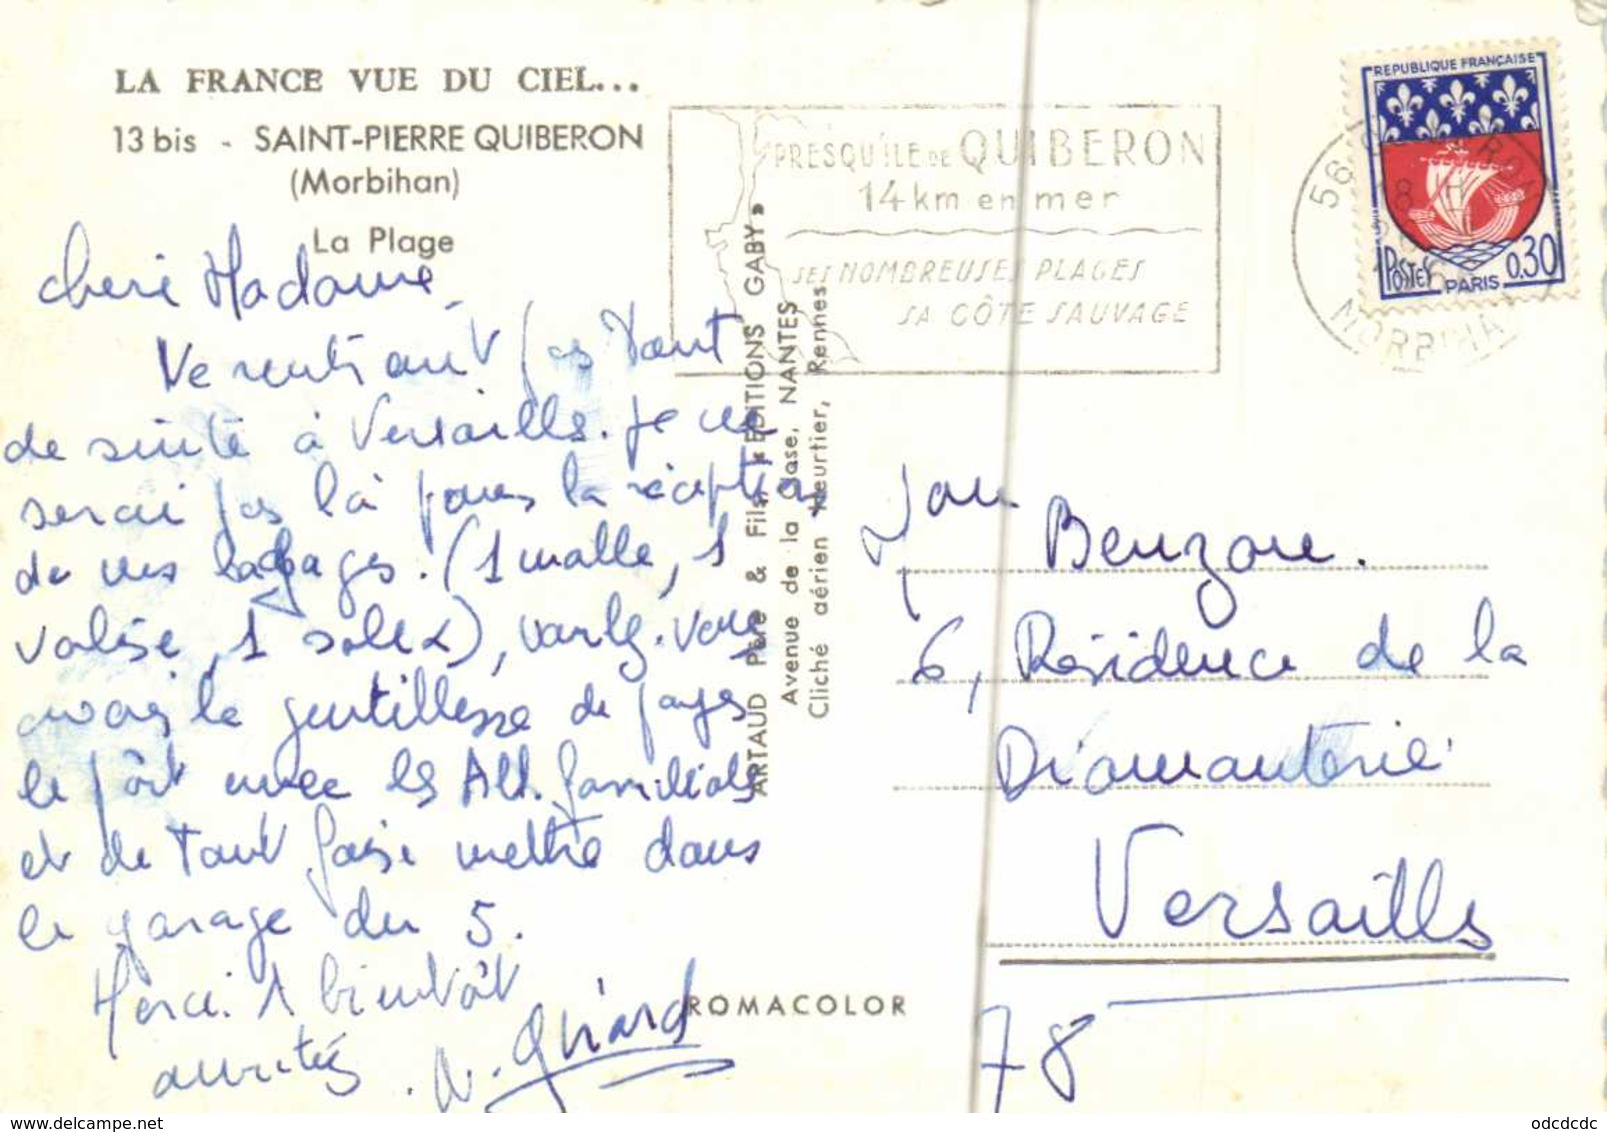 LA FRANCE VUE DU CIEL...
13 bis - SAINT-PIERRE QUIBERON
(Morbihan)
La Plage
PRESQU'ILE DE QUIBERON
14 km en mer
SES NOMBREUSES PLAGES
SA CÔTE SAUVAGE
REPUBLIQUE FRANÇAISE
POSTES PARIS 0,30
56
18 H
MORBIHAN
chère Madame,
Ne rentrant pas tout
de suite à Versailles. je ne
serai pas là pour la réception
de mes bagages. (1 malle, 1
valise, 1 solex), voulez-vous
avoir la gentillesse de payer
le pôrt avec les All. familiales
et de tout faire mettre dans
le garage du 5.
Merci. A bientôt
amitiés. N. Guirard
ARTAUD Père & Fils, « EDITIONS GABY »
Avenue de la Close, NANTES
Cliché aérien Heurtier, Rennes
ROMACOLOR
Benzon.
6, Résidence de la
Diamanterie
Versailles
78
odcdcdc